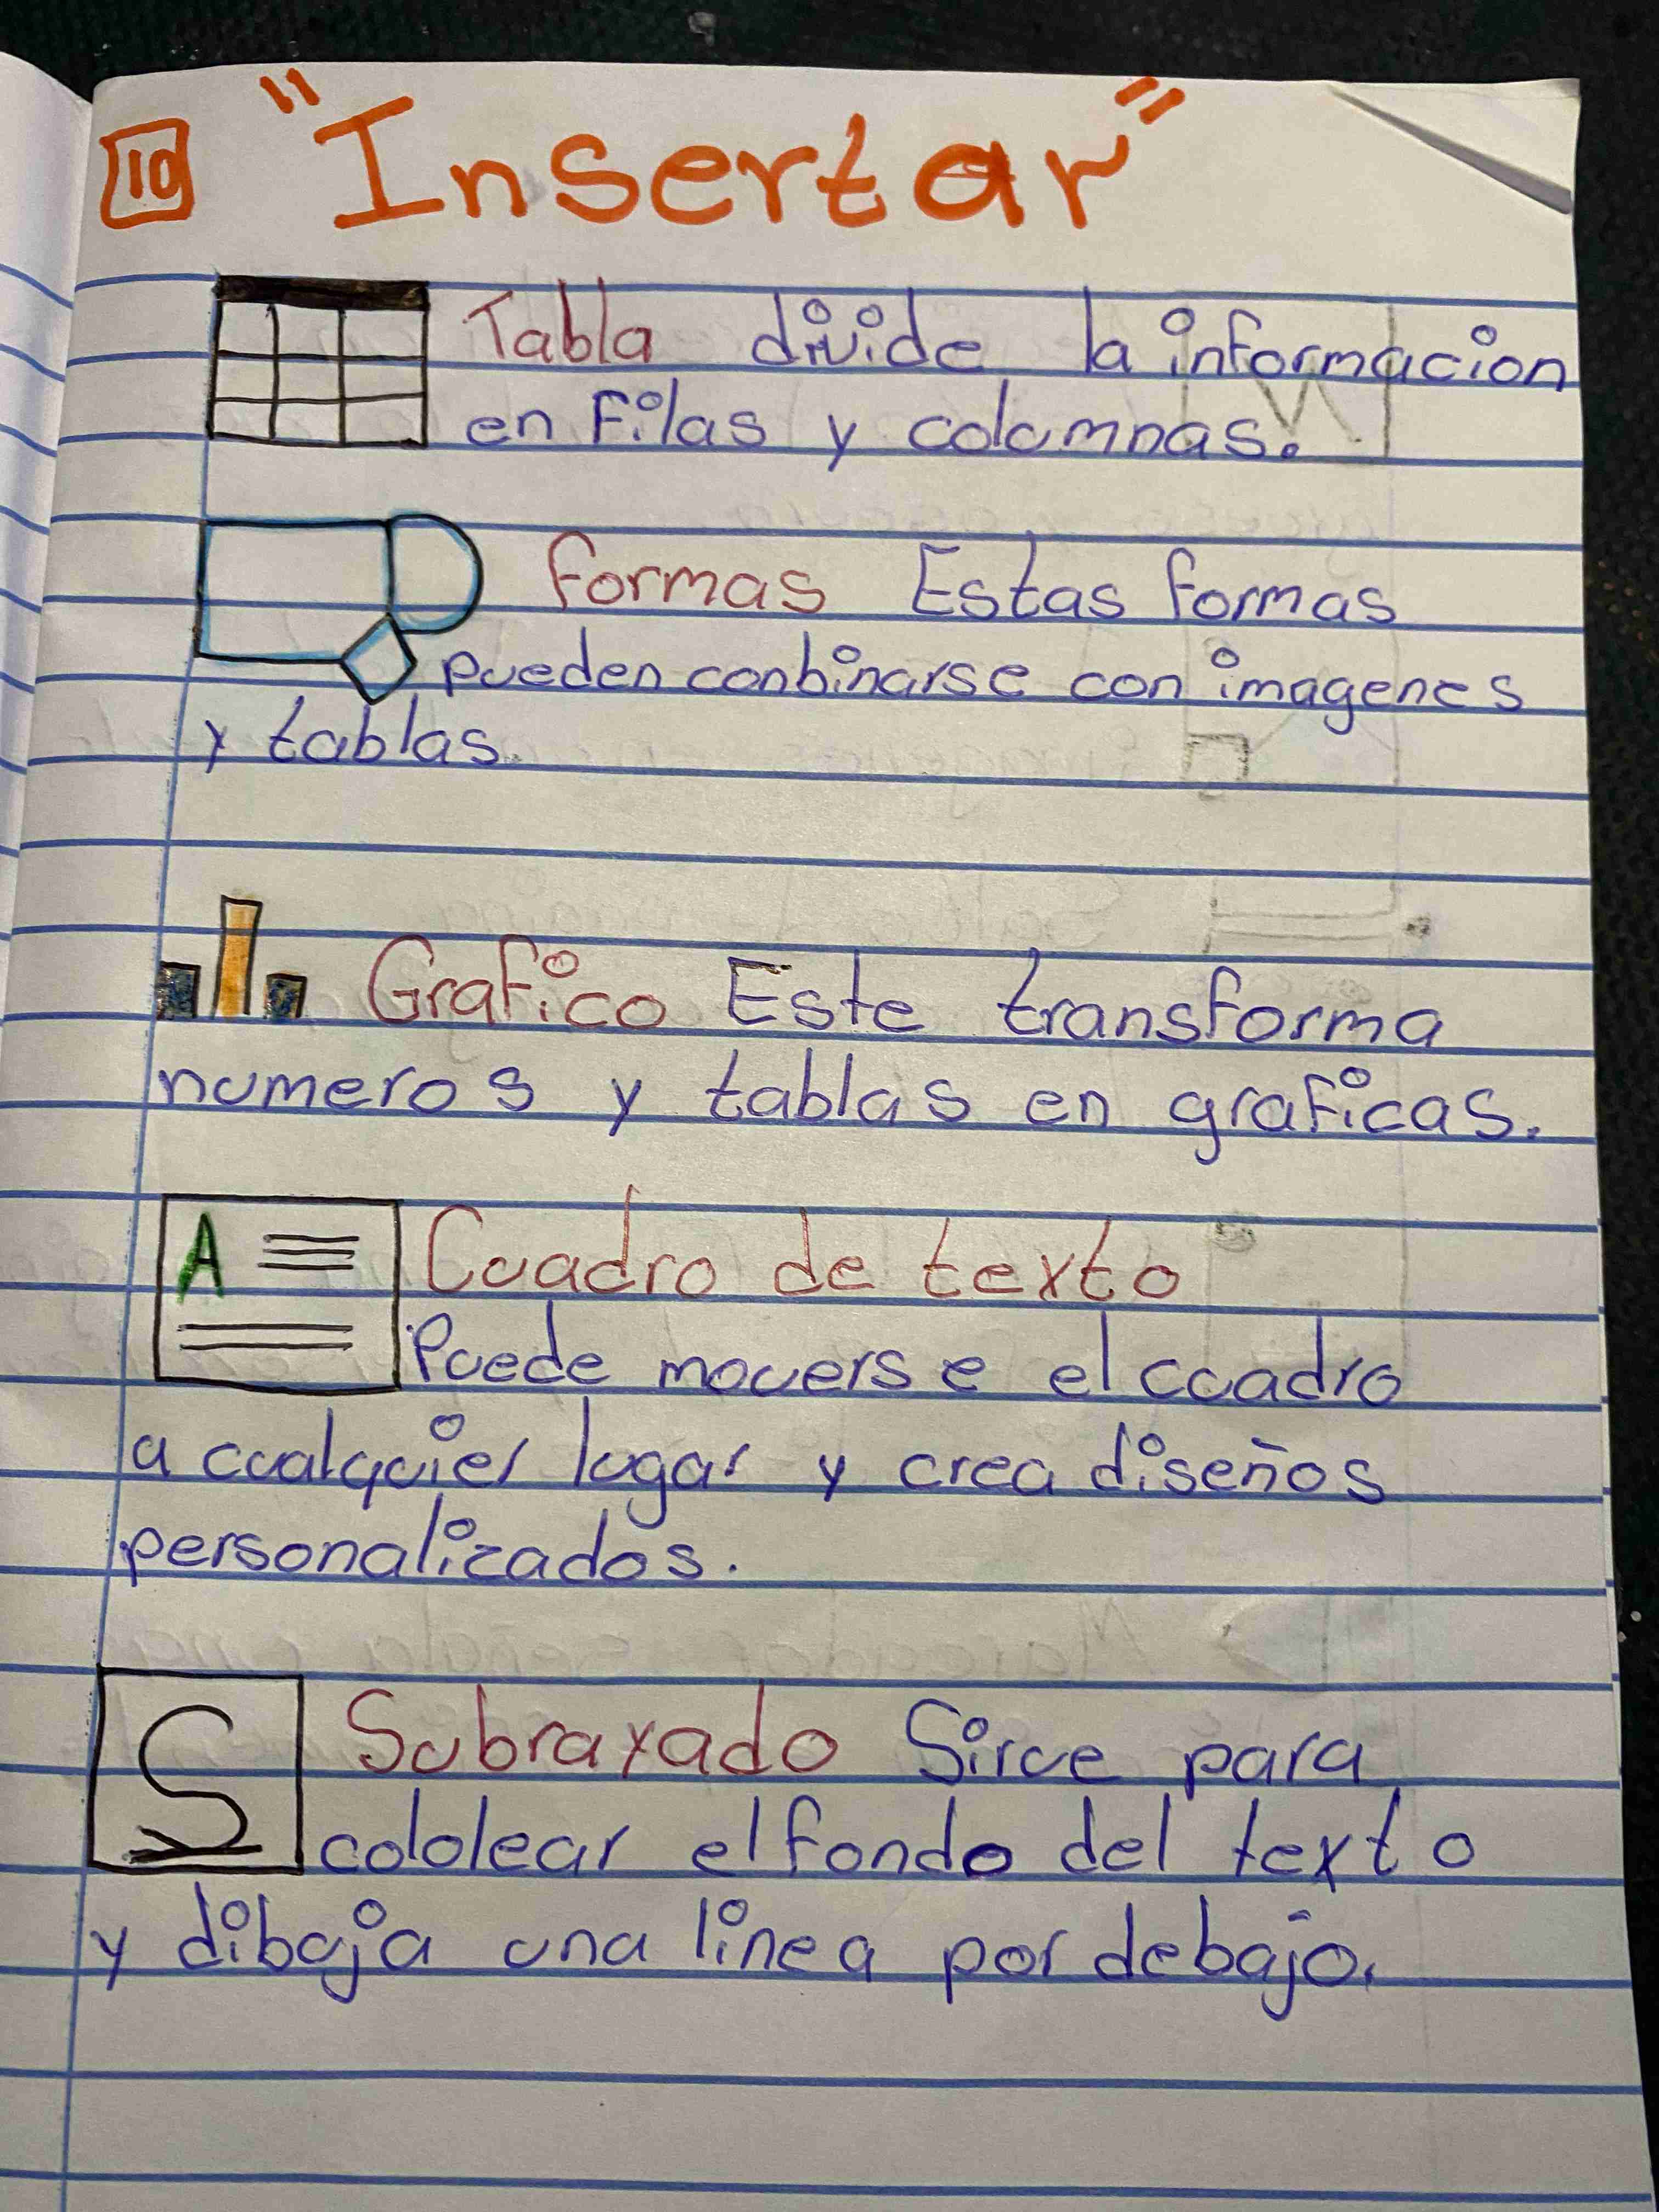 10 "Insertar"
Tabla divide la informacion
en Filas y columnas.
formas Estas formas
pueden conbinarse con imagenes
y tablas.
Grafico Este transforma
numeros y tablas en graficas.
A Cuadro de texto
Puede moverse el cuadro
a cualquier lugar y crea diseños
personalizados.
S Subrayado Sirve para
cololear el fondo del texto
y dibuja una linea por debajo.